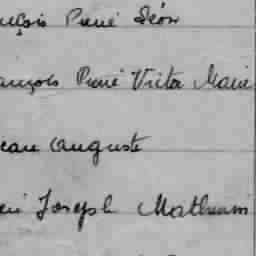 nçois Pierre Léon
ançois Pierre Victor Marie
ean Auguste
Joseph Mathurin